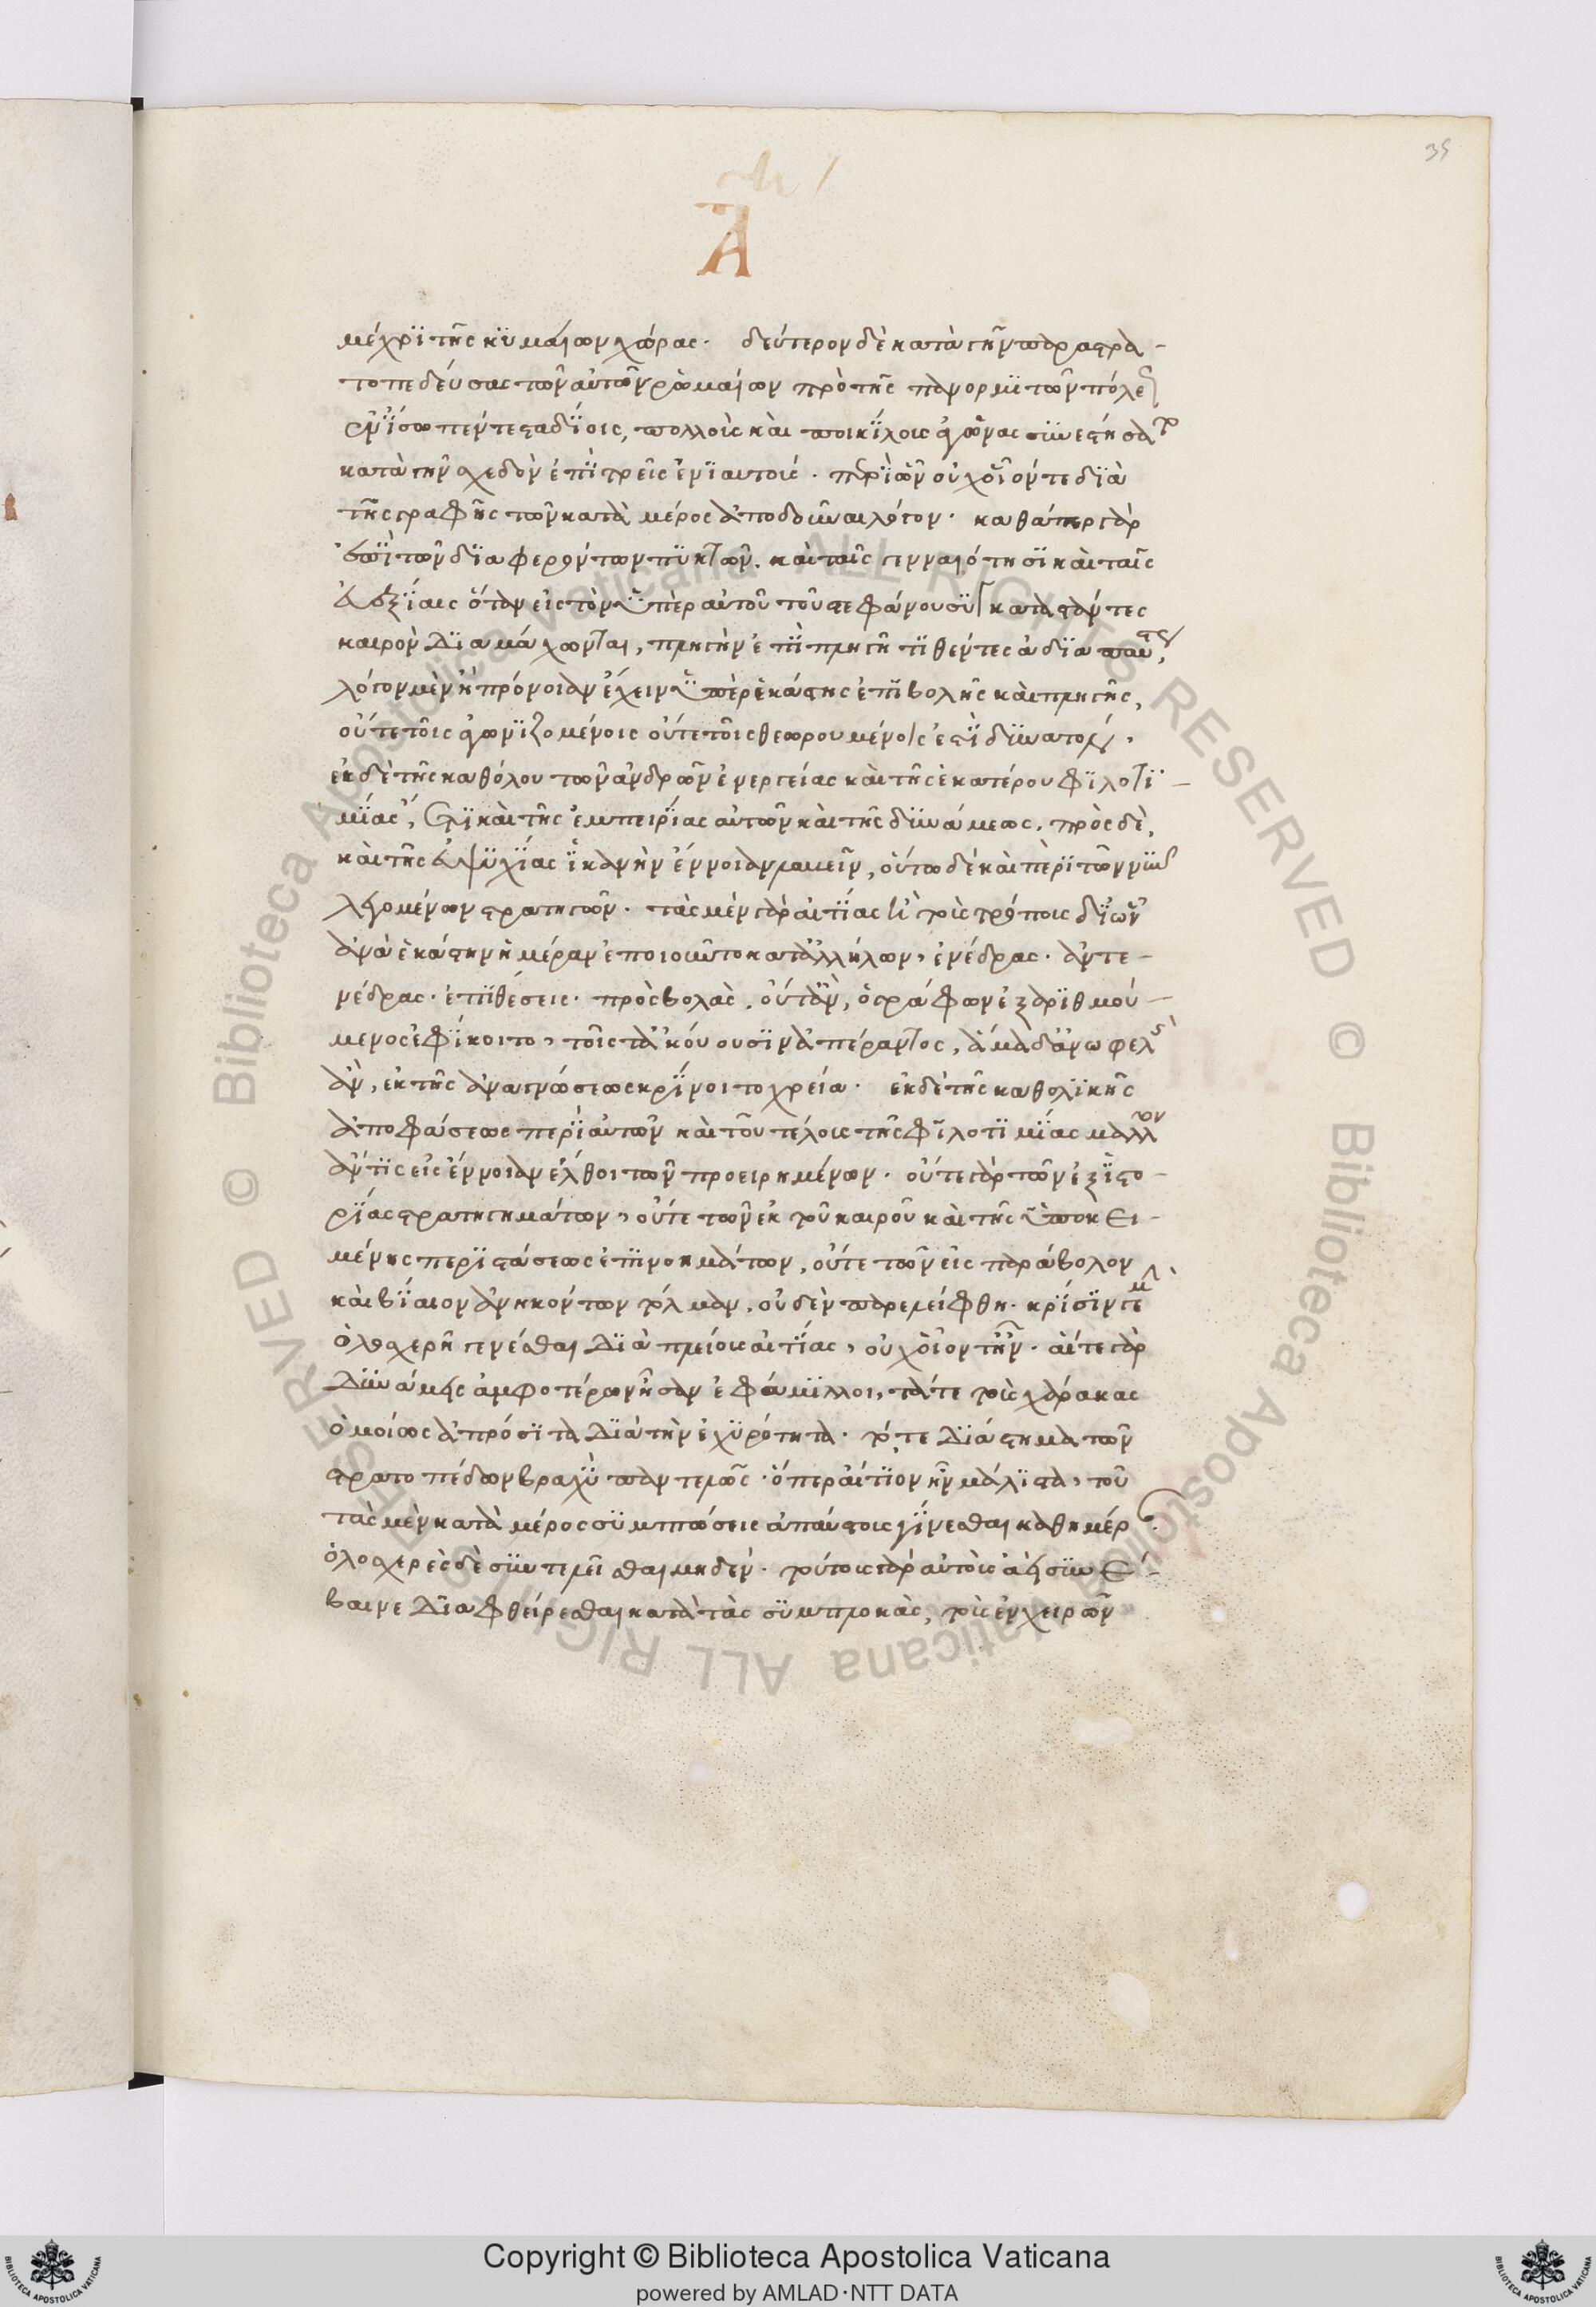 35
Α
μέχρϊ τῆς κϋμαίων χώρας· δεύτερον δὲ κατὰ τὴν παραστρα-
τοπεδεύσας τῶν αὐτῶν ρωμαίων πρὸ τῆς πανορμϊτῶν πόλεως
ἐνΐσω πέντε σταδΐοις, πολλοὺς καὶ ποικΐλους ἀγῶνας σϋνεστήσατο
κατὰ τὴν σχεδὸν ἐπῒ τρεῖς ἐνϊαυτούς· περῒ ὧν οὐχ οἷόν τε δϊὰ
τῆς γραφῆς τῶν κατὰ μέρος ἀποδοῦναι λόγον· καθάπερ γὰρ
ἐπῒ τῶν δϊαφερόντων πϋκτῶν. καὶ ταῖς γενναιότησϊ καὶ ταῖς
εὐεξΐαις ὅταν εἰς τὸν ὑπὲρ αὐτοῦ τοῦ στεφάνου σϋγκαταστάντες
καιρὸν δϊαμάχωνται, πληγὴν ἐπῒ πληγῇ τϊθέντες ἀδϊαπαύστως,
λόγον μὲν ἢ πρόνοιαν ἔχειν ὑπὲρ ἑκάστης ἐπϊβολῆς καὶ πληγῆς,
οὔτε τοῖς ἀγωνϊζομένοις οὔτε τοῖς θεωρουμένοις ἐστῒ δϋνατόν,
ἐκ δὲ τῆς καθόλου τῶν ἀνδρῶν ἐνεργείας καὶ τῆς ἑκατέρου φϊλοτϊ-
μΐας, ἔστϊ καὶ τῆς ἐμπειρΐας αὐτῶν καὶ τῆς δϋνάμεως. πρὸς δὲ,
καὶ τῆς εὐψϋχΐας ἱκανὴν ἔννοιαν λαβεῖν, οὕτω δὲ καὶ περῒ τῶν νῦν
λεγομένων στρατηγῶν· τὰς μὲν γὰρ αἰτΐας ἢ τοὺς τρόπους δϊ’ ὧν
ἀνὰ ἑκάστην ἡμέραν ἐποιοῦντο κατ’ ἀλλήλων, ἐνέδρας· ἀντε-
νέδρας· ἐπϊθέσεις· προσβολὰς. οὔτ’ ἂν, ὁ γράφων ἐξαρϊθμού-
μενος ἐφΐκοιτο, τοῖς τ’ ἀκούουσϊν ἀπέραντος, ἅμα δ’ ἀνωφελὴς
ἂν, ἐκ τῆς ἀναγνώσεως κρΐνοιτο χρεία· ἐκ δὲ τῆς καθολϊκῆς
ἀποφάσεως περῒ αὐτῶν καὶ τοῦ τέλους τῆς φϊλοτϊμΐας μᾶλλον
ἄν τϊς εἰς ἔννοιαν ἔλθοι τῶν προειρημένων· οὔτε γὰρ τῶν ἐξ ΐστο-
ρΐας στρατηγημάτων, οὔτε τῶν ἐκ τοῦ καιροῦ καὶ τῆς ὑποκει-
μένης περϊστάσεως ἐπϊνοημάτων, οὔτε τῶν εἰς παράβολον
καὶ βΐαιον ἀνηκόντων τόλμαν, οὐδὲν παρελείφθη· κρΐσϊν γε μὴν
ὁλοσχερῆ γενέσθαι δϊὰ πλείους αἰτΐας, οὐχ οἷόν τ’ ἦν· αἵ τε γὰρ
δϋνάμεις ἀμφοτέρων ἦσαν ἐφάμϊλλοι, τά τε τοὺς χάρακας
ὁμοίως ἀπρόσϊτα δϊὰ τὴν ἐχϋρότητα· τό, τε δϊάστημα τῶν
στρατοπέδων βραχῢ παντελῶς· ὅπερ αἴτϊον ἦν μάλϊστα, τοῦ
τὰς μὲν κατὰ μέρος σϋμπτώσεις ἀπαύστους γΐνεσθαι καθημέραν.
ὁλοσχερὲς δὲ σϋντελεῖσθαι μηδέν· τούτους γὰρ αὐτοὺς ἀεὶ σϋνέ-
βαινε δϊαφθείρεσθαι κατὰ τὰς σϋμπλοκὰς, τοὺς ἐν χειρῶν
Copyright © Biblioteca Apostolica Vaticana
powered by AMLAD·NTT DATA